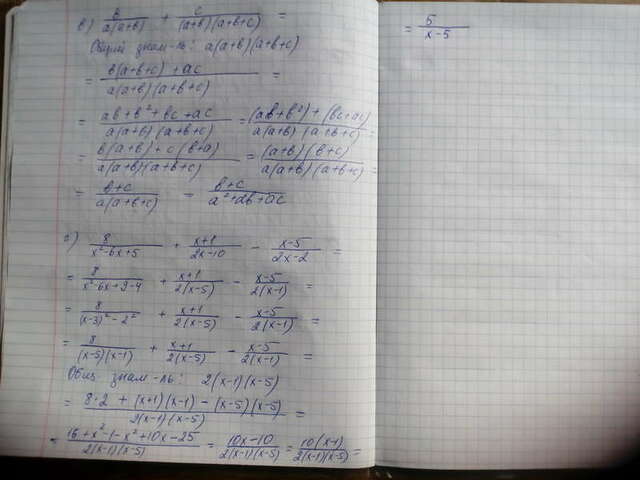 в) в/(a(a+в)) + c/((a+в)(a+в+c)) =
Общий знам-ль: a(a+в)(a+в+c)
= (в(a+в+c)+ac)/(a(a+в)(a+в+c)) =
= (aв+в²+вc+ac)/(a(a+в)(a+в+c)) = ((aв+в²)+(вc+ac))/(a(a+в)(a+в+c)) =
= (в(a+в)+c(в+a))/(a(a+в)(a+в+c)) = ((a+в)(в+c))/(a(a+в)(a+в+c)) =
= (в+c)/(a(a+в+c)) = (в+c)/(a²+aв+ac)
г) 8/(x²-6x+5) + (x+1)/(2x-10) - (x-5)/(2x-2) =
= 8/(x²-6x+9-4) + (x+1)/(2(x-5)) - (x-5)/(2(x-1)) =
= 8/((x-3)²-2²) + (x+1)/(2(x-5)) - (x-5)/(2(x-1)) =
= 8/((x-5)(x-1)) + (x+1)/(2(x-5)) - (x-5)/(2(x-1)) =
Общ. знам-ль: 2(x-1)(x-5)
= (8·2+(x+1)(x-1)-(x-5)(x-5))/(2(x-1)(x-5)) =
= (16+x²-1-x²+10x-25)/(2(x-1)(x-5)) = (10x-10)/(2(x-1)(x-5)) = (10(x-1))/(2(x-1)(x-5)) =
= 5/(x-5)